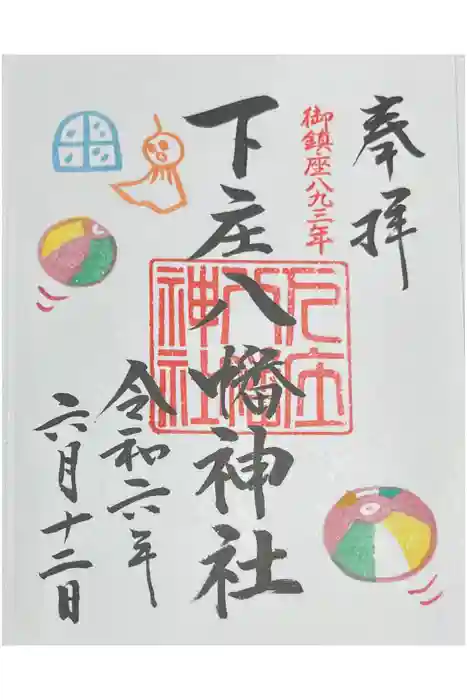 奉拝
御鎮座八九三年
下庄八幡神社
下庄八幡神社
令和六年
六月十二日